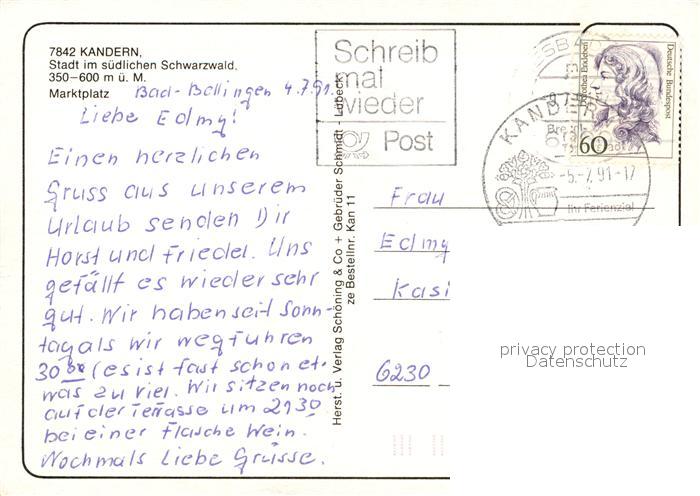 7842 KANDERN,
Stadt im südlichen Schwarzwald,
350–600 m ü. M.
Marktplatz
Bad-Bellingen 4.7.91.
Liebe Edmy!
Einen herzlichen
Gruss aus unserem
Urlaub senden Dir
Horst und Friedel. Uns
gefällt es wieder sehr
gut. Wir haben seit Sonn-
tag als wir wegfuhren
30 (es ist fast schon et-
was zu viel. Wir sitzen noch
auf der Terrasse um 21 30
bei einer Flasche Wein.
Nochmals Liebe Grüsse.
Herst. u. Verlag Schöning & Co + Gebrüder Schmidt - Lübeck
ze Bestellnr. Kan 11
Schreib
mal
wieder
Post
KANDER
-5.-7.91-17
Ihr Ferienziel
Deutsche Bundespost
60
Frau
Edmy
Kasi
6230
privacy protection
Datenschutz